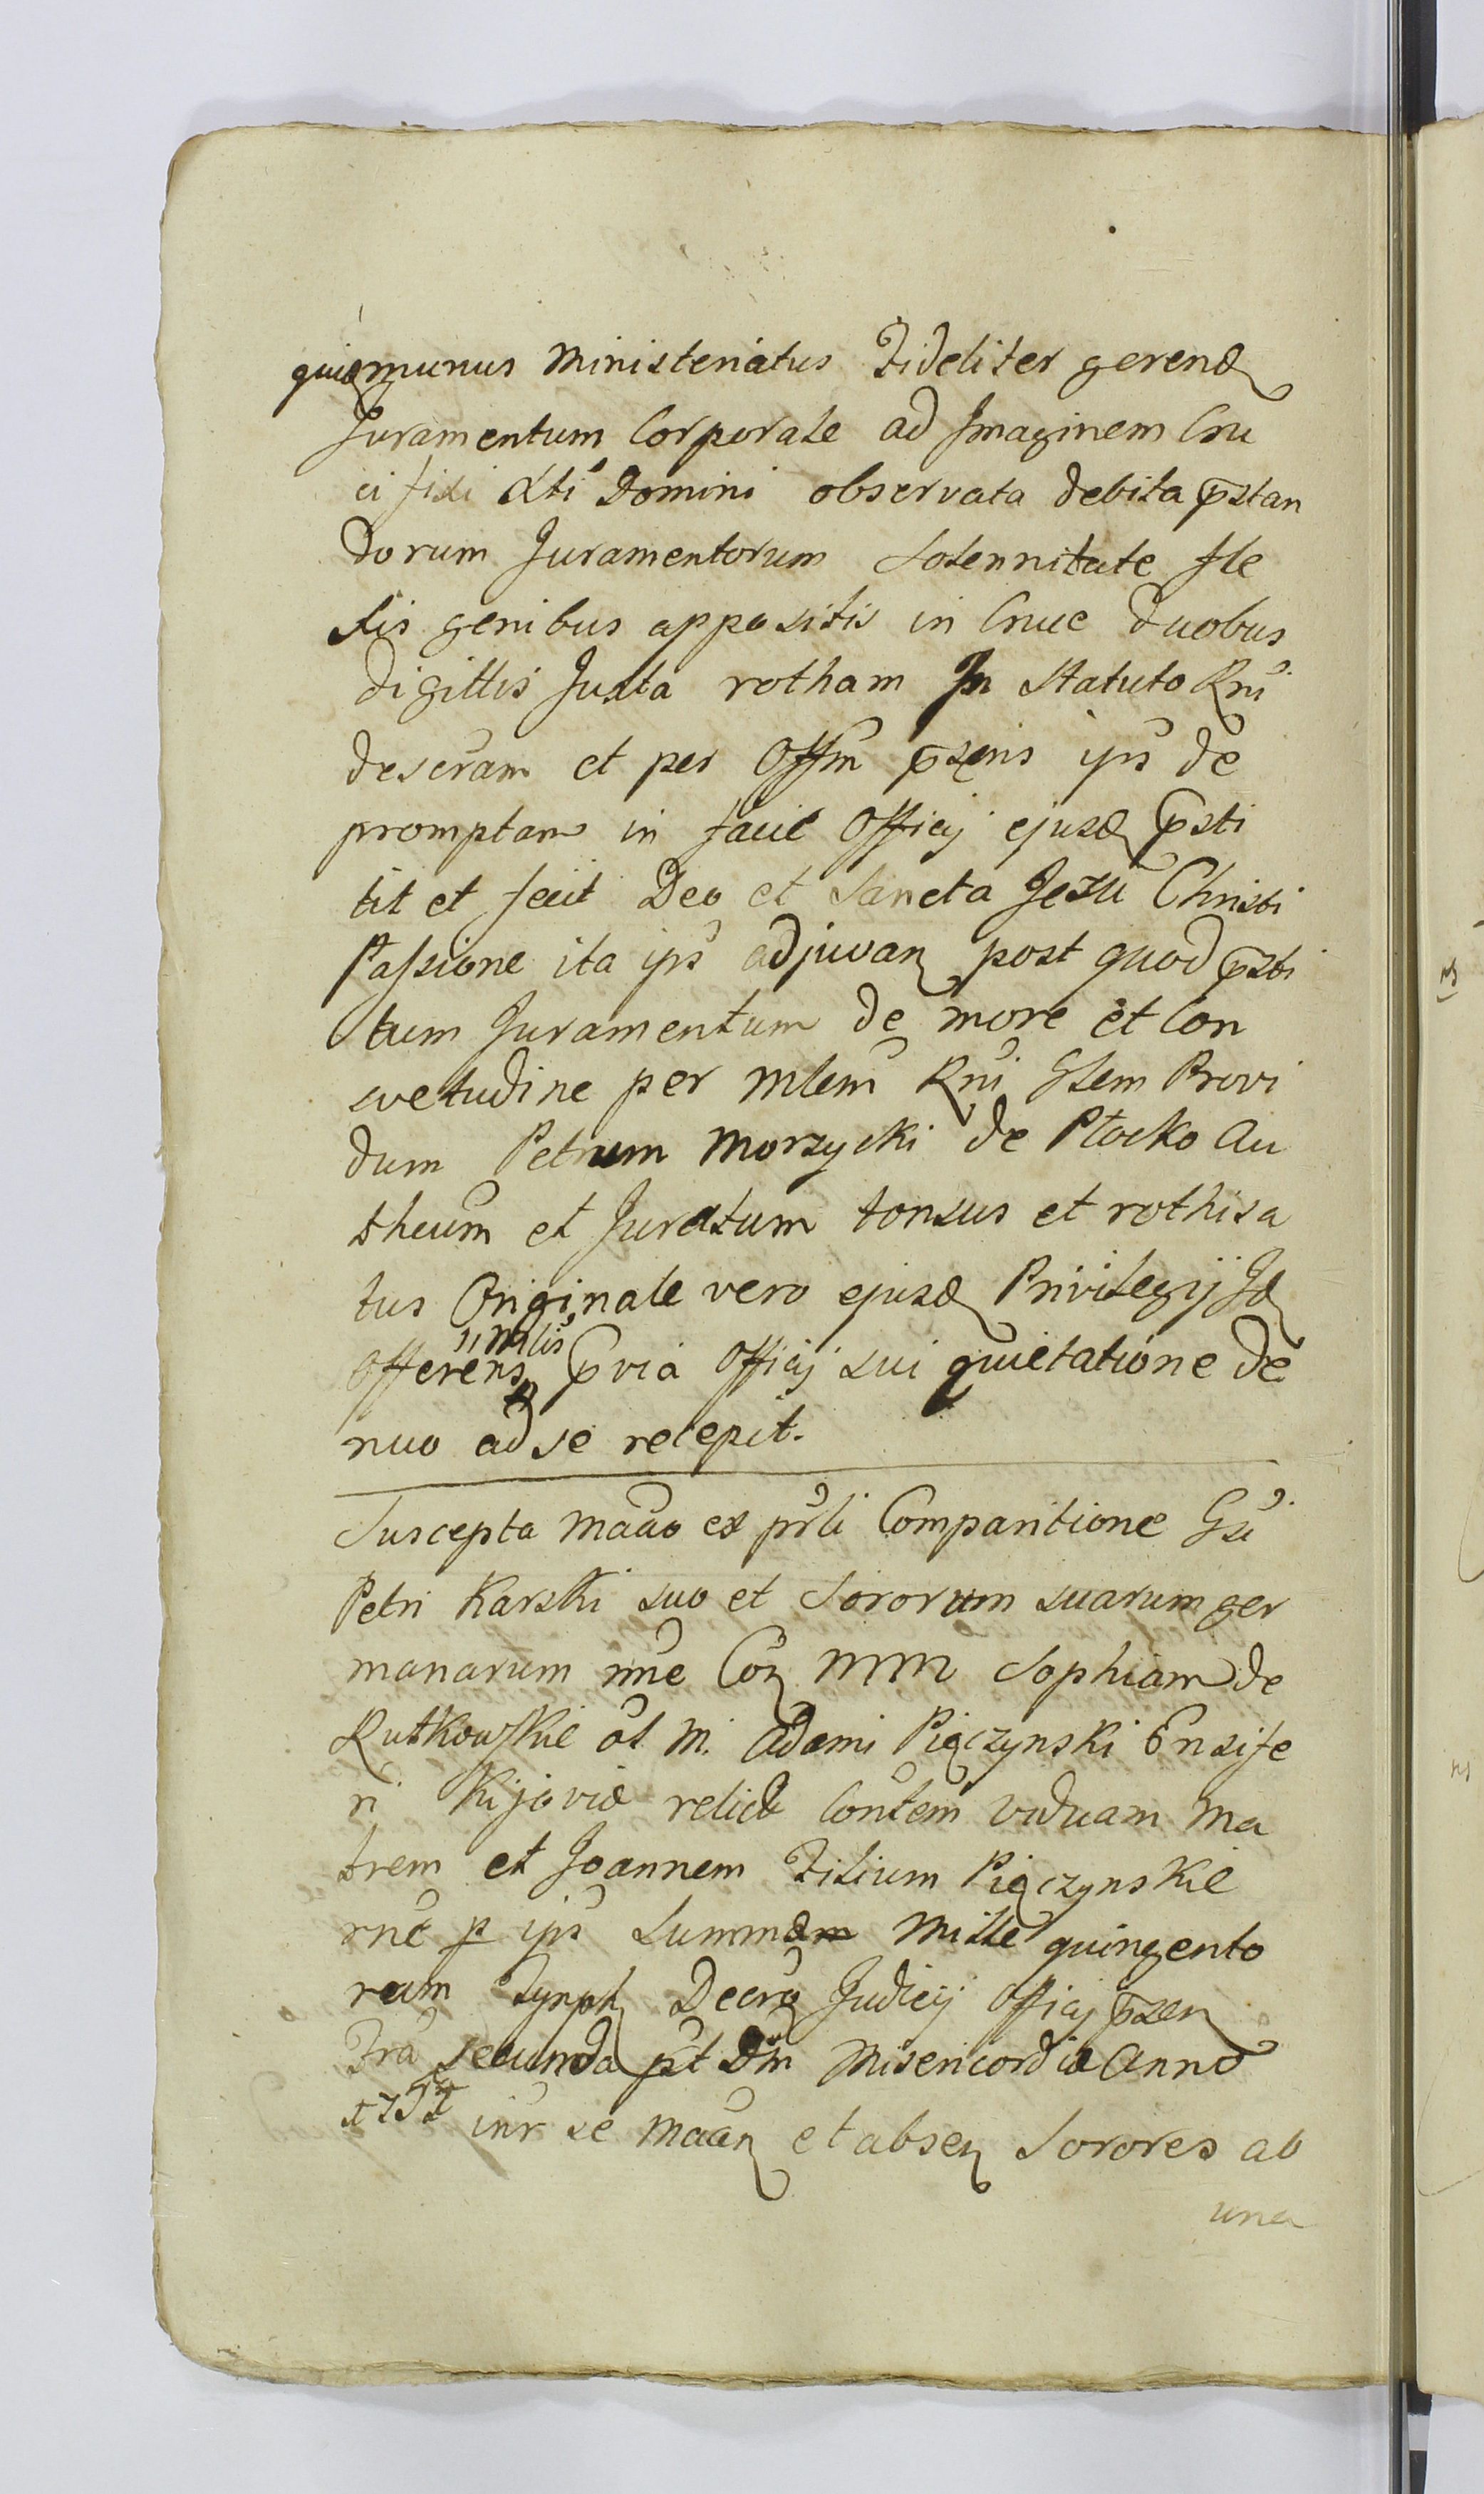 quidem munus Ministeriatus Fideliter gerend
Juramentum Corporale ad Imaginem Cru
ci fixi Xti Domini observata debita p̄stan
dorum Juramentorum Solennitate fle
xis genibus appositis in Cruce duobus
digittis Juxta rotham In Statuto Rni
descram et per Offm p̄sens ips de
promptam in facie Officij ejusd p̄sti
tit et fecit Deo et Sancta Jesu Christi
Passione ita ips adjuvan post quod p̄sti
tum Juramentum de more et Con
svetudine per Mlem Rni Glem Provi
dum Petrum Morzycki de Płocko Au
theum et Juratum tonsus et rothisa
tus Originale vero ejusd Privilegij Id
Offerens p̄via Officij sui quietatione de
nuo ad se recepit.
Suscepta Maão ex prli Comparitione Gsi
Petri Karski suo et Sororum suarum ger
manarum nne Con MM Sophiam de
Rutkowskie ol M. Adami Pięczynski Ensife
ri Kijoviæ relict Contem viduam Ma
trem et Joannem Filium Pięczynskie
rne p ips Summam Mille quingento
rum Symph Decro Judicij Officij p̄sen
Fra secunda pst Dm Misericordiæ Anno
1751 inr se Maan et absen Sorores ab
una